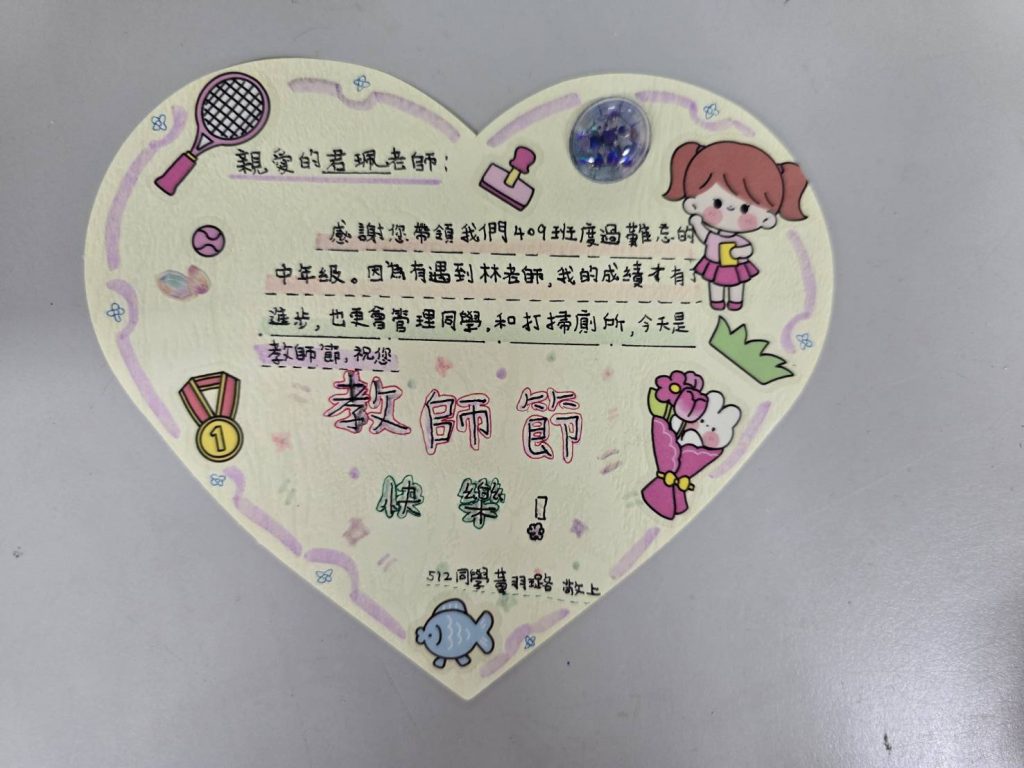 親愛的君珮老師:
感謝您帶領我們409班度過難忘的
中年級。因為有遇到林老師,我的成績才有了
進步,也更會管理同學,和打掃廁所,今天是
教師節,祝您
教師節
快樂!
512同學黃羽璐 敬上
1